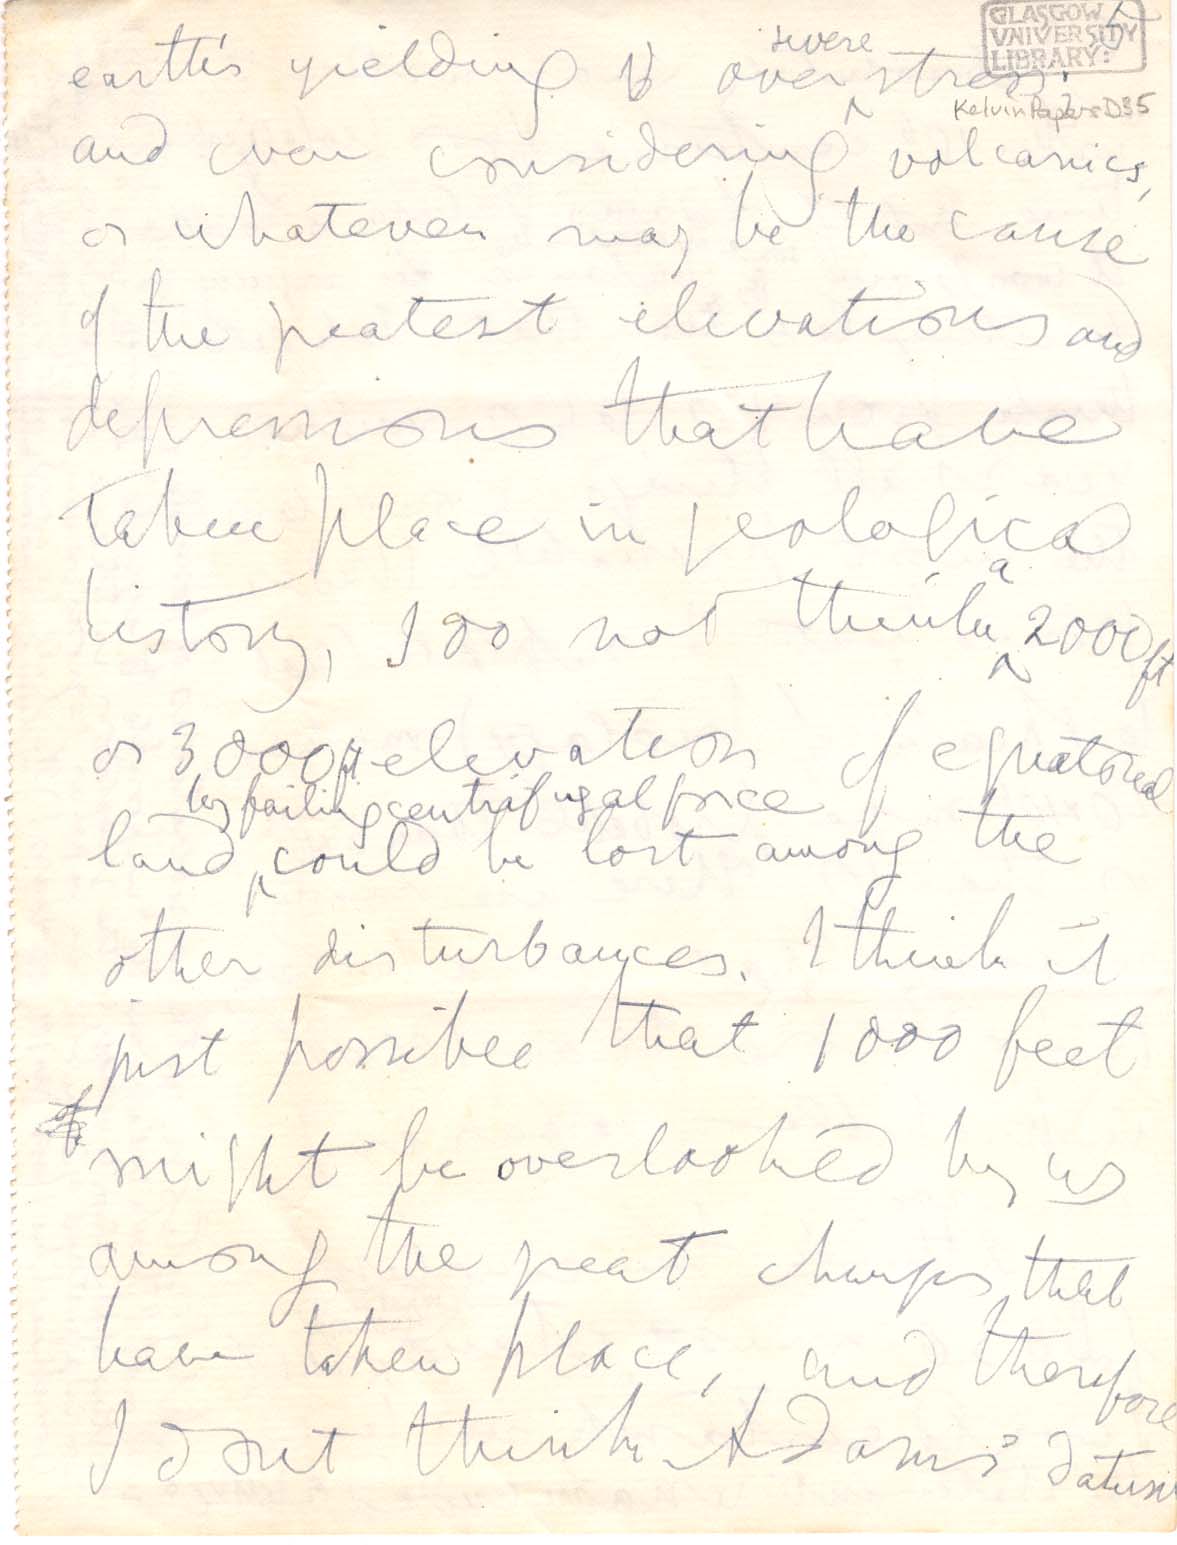 5
GLASGOW
UNIVERSITY
LIBRARY:
Kelvin Papers D35
severe
earth's yielding to over stress.
and even considering volcanics,
or whatever may be the cause
of the greatest elevations and
depressions that have
taken place in geological
history, I do not think a 2000 ft
or 3000 ft elevation of equatoreal
by failing centrifugal force
land, could be lost among the
other disturbances. I think it
just possible that 1000 feet
might be overlooked by us
among the great changes that
have taken place, and therefore
I dont think Adams' datum